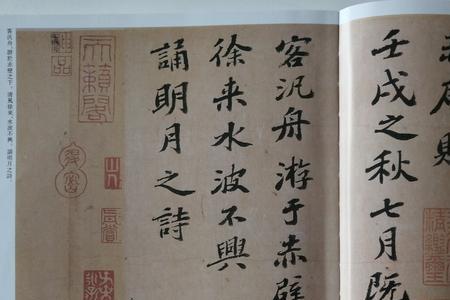 壬戌之秋七月既
客汎舟游于赤壁
徐来水波不興
誦明月之詩
天籟閣
客汎舟，游於赤壁之下。清風徐來，水波不興。誦明月之詩，